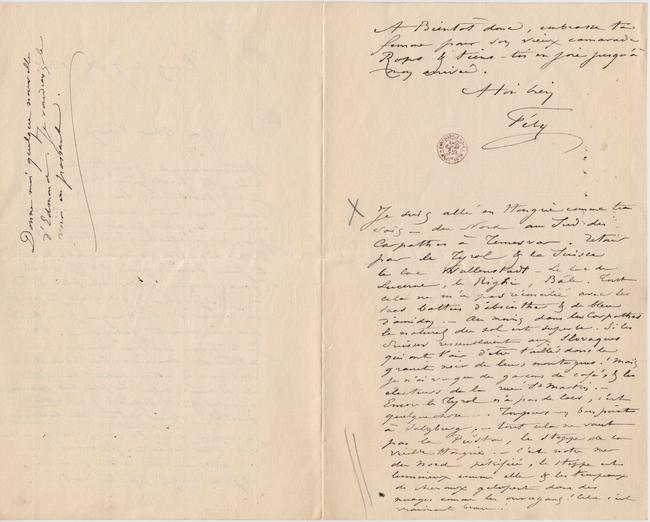 A Bientôt donc, embrasse ta
femme pour son vieux camarade
Rops & tiens-toi en joie jusqu'à
mon arrivée.
A toi bien
Fély
Je suis allé en Hongrie comme tu
sais – du Nord au Sud. des
Carpathes à Temesvar. Retour
par le Tyrol & la Suisse
le lac Wallenstadt – Le lac de
Lucerne, le Righi, Bâle. Tout
cela ne m'a pas réconcilié avec les
lacs battus d'absinthe & de bleu
d'amidon. – Au moins dans les Carpathes
le naturel du sol est superbe. Si les
Suisses ressemblaient aux Slovaques
qui ont l'air d'être taillés dans le
granit noir de leurs montagnes! Mais
je n'ai vu que des garçons de café, & les
électeurs de la rue St Martin. –
Encor le Tyrol n'a pas de lacs, c'est
quelque chose –. Toujours bon
à Salzburg, – tout cela ne vaut
pas la Puszta, la steppe de la
vieille Hongrie. – C'est notre mer
du Nord pétrifiée, la steppe est
lumineux comme elle & les troupeaux
de chevaux galopent dans des
nuages comme les ouragans! Cela c'est
vraiment beau!
Donne moi quelque nouvelle
d'Edmond. Je voudrais le
voir en passant.